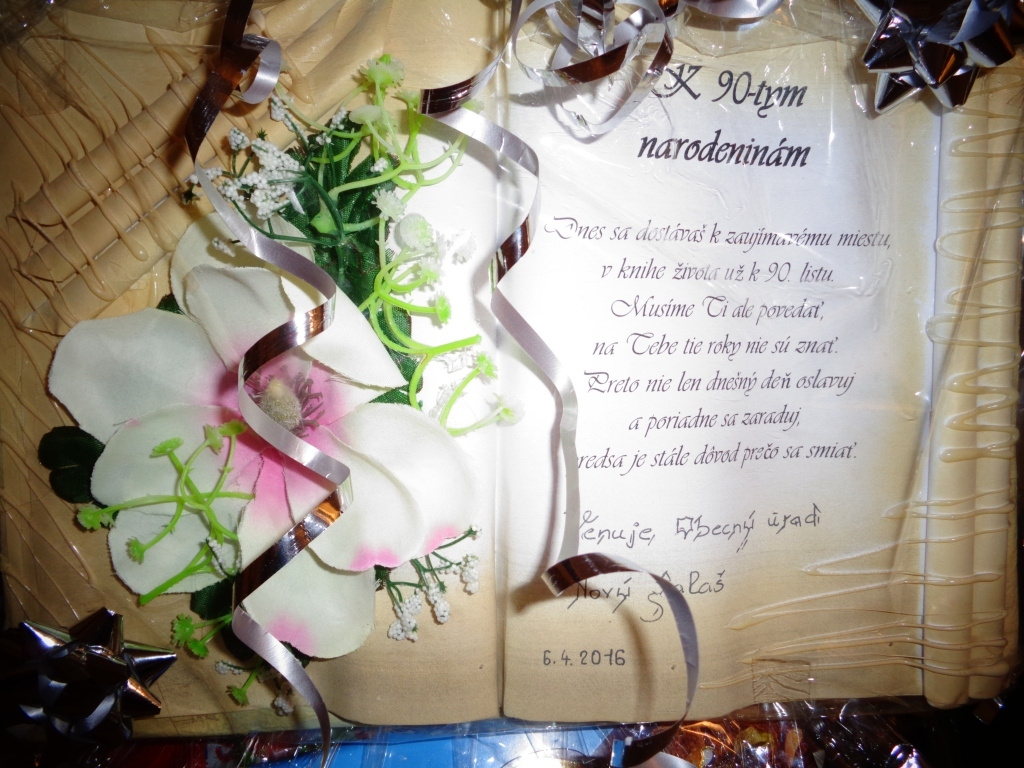 K 90-tym
narodeninám
Dnes sa dostávaš k zaujímavému miestu,
v knihe života už k 90. listu.
Musíme Ti ale povedať,
na Tebe tie roky nie sú znať.
Preto nie len dnešný deň oslavuj
a poriadne sa zaraduj,
redsa je stále dôvod prečo sa smiať.
Venuje, Obecný úrad
Nový Salaš
6.4.2016